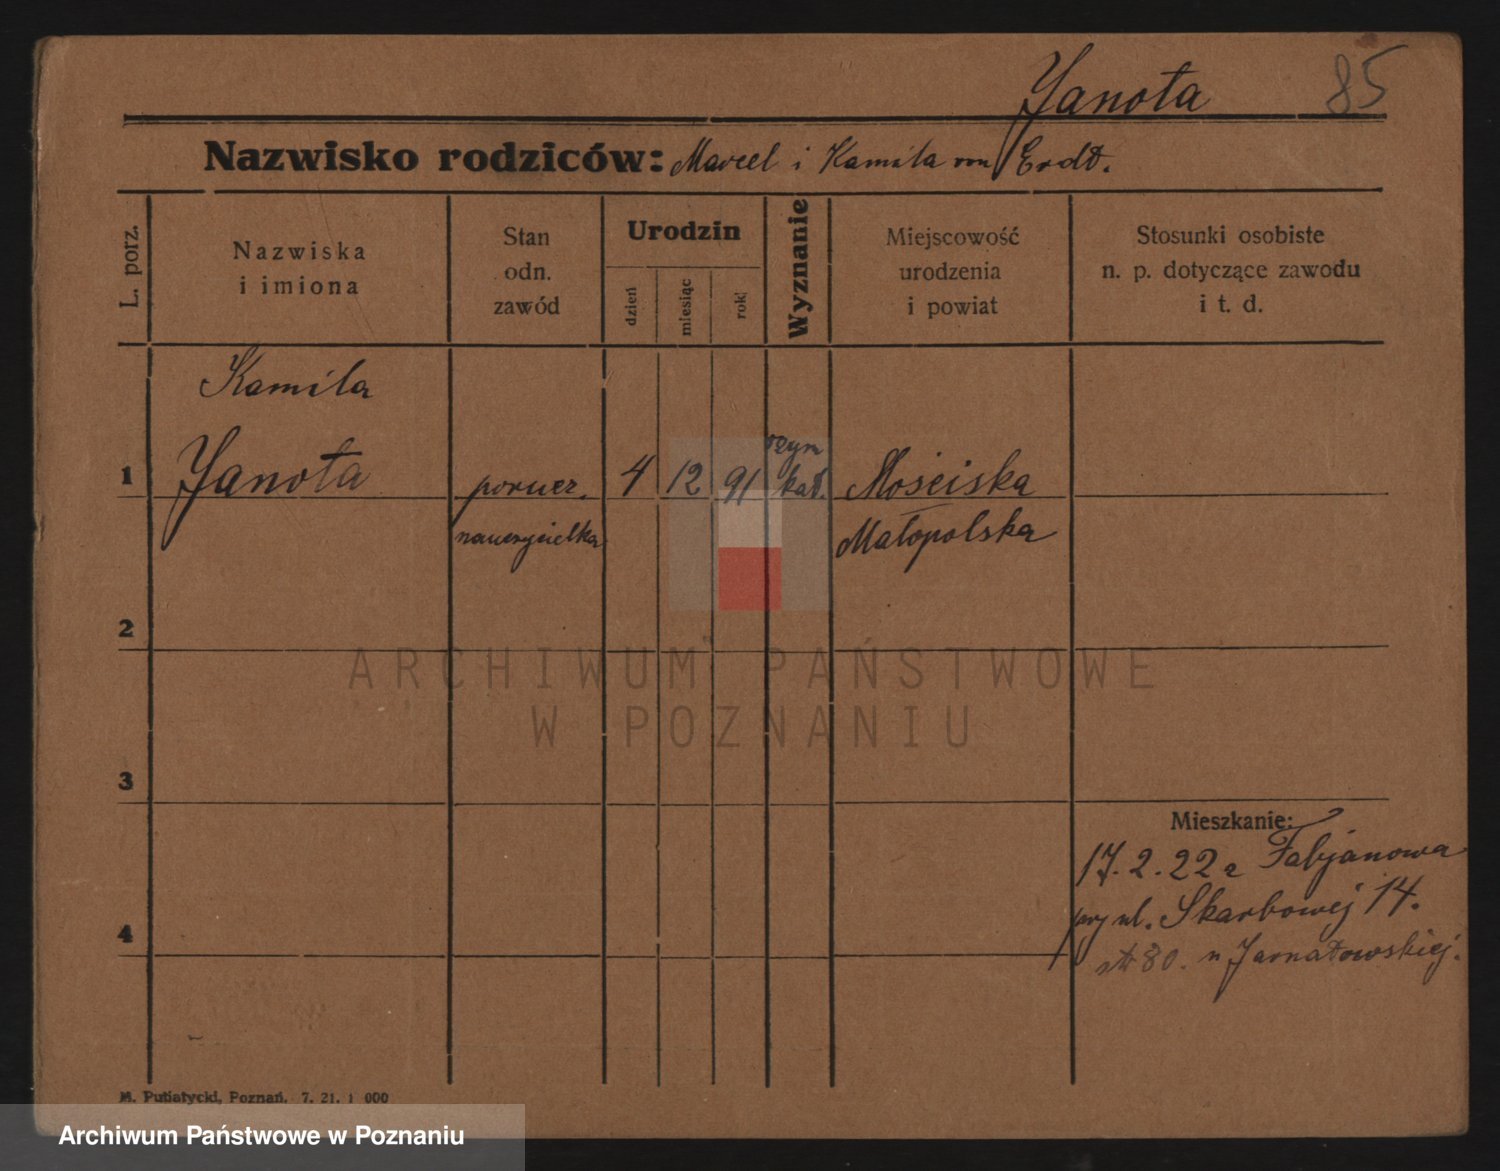 Janota 85
Nazwisko rodziców: Marcel i Kamila von Erdt.
L. porz.
Nazwiska
i imiona
Stan
odn.
zawód
Urodzin
dzień
miesiąc
rok
Wyznanie
Miejscowość
urodzenia
i powiat
Stosunki osobiste
n. p. dotyczące zawodu
i t. d.
Kamila
1 Janota 4 12 91 rzym
kat. Mościska
nauczycielka Małopolska
2
ARCHIWUM PAŃSTWOWE
W POZNANIU
3
Mieszkanie:
17.2.22 z Fabjanowa
przy ul. Skarbowej 14.
80. u Jarnatowskiej.
4
M. Putiatycki, Poznań. 7. 21. 1 000
Archiwum Państwowe w Poznaniu